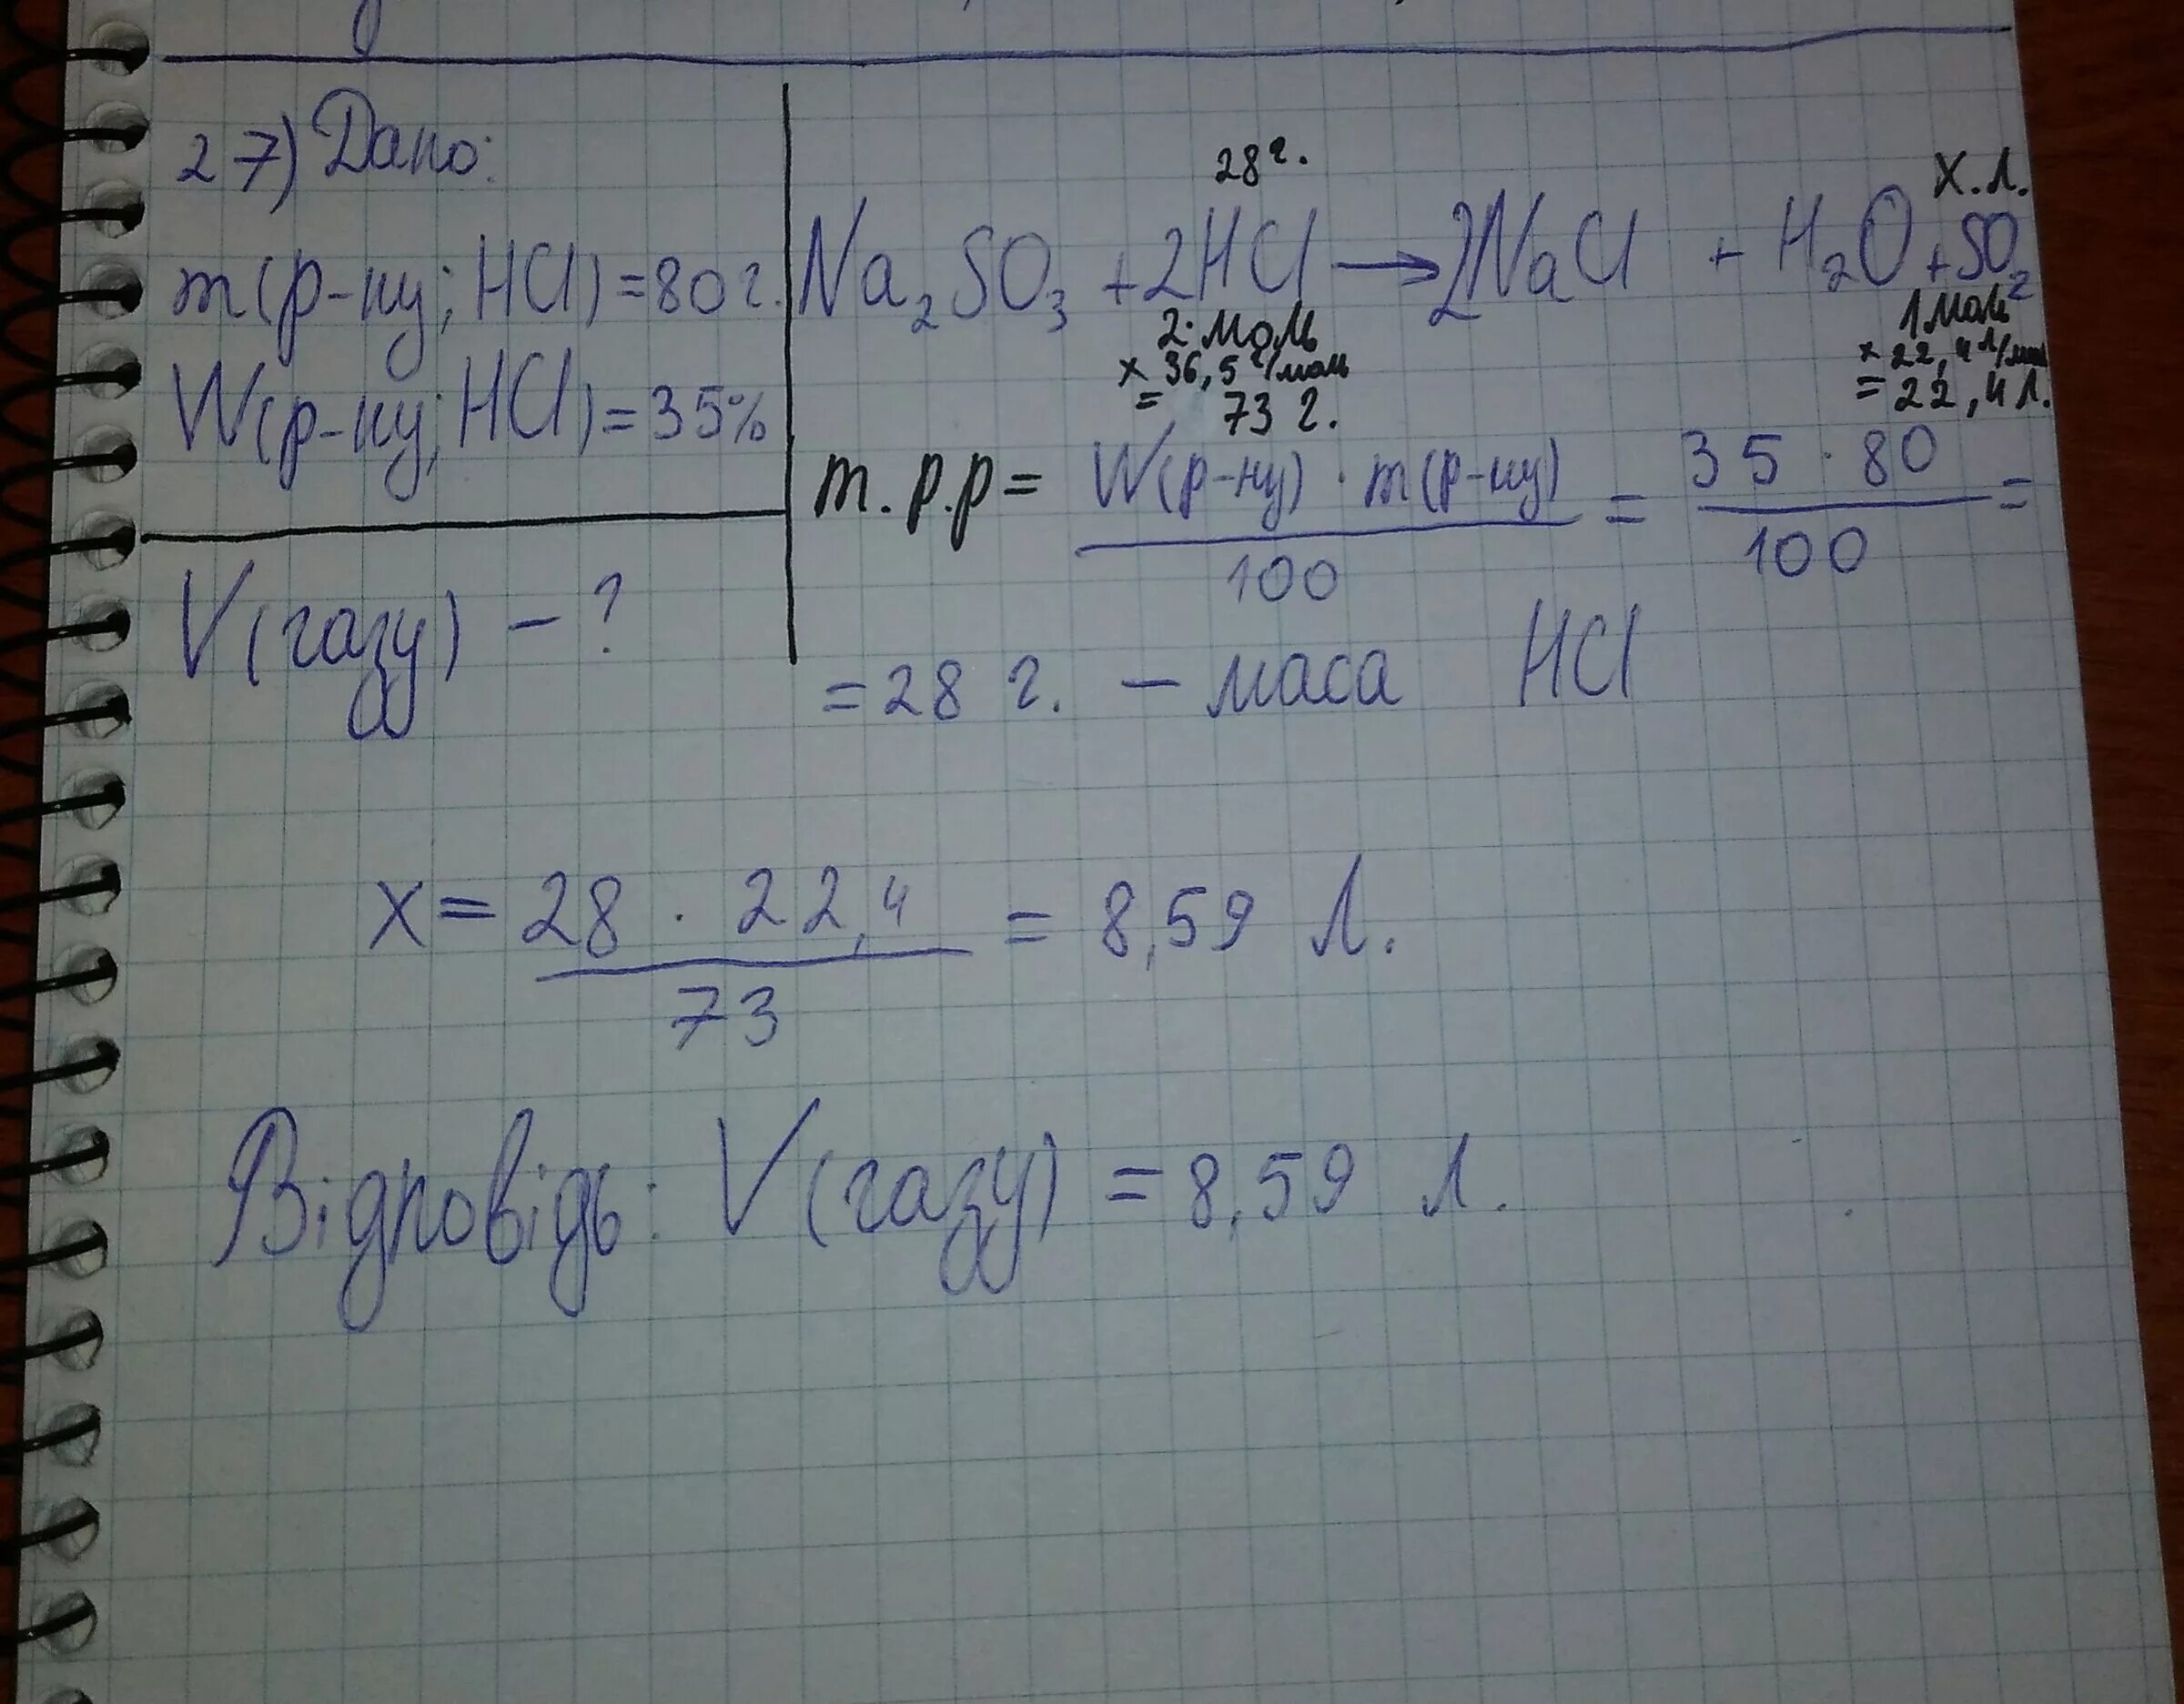 27) Дано:
m(р-ну; HCl) = 80 г.
W(р-ну; HCl) = 35%
V(газу) – ?
28 г.
х.л.
Na₂SO₃ + 2HCl → 2NaCl + H₂O + SO₂
2 моль
х 36,5 г/моль
= 73 г.
1 моль
х 22,4 л/моль
= 22,4 л.
m.р.р = W(р-ну) · m(р-ну) / 100 = 35 · 80 / 100 =
= 28 г. – маса HCl
х = 28 · 22,4 / 73 = 8,59 л.
Відповідь: V(газу) = 8,59 л.